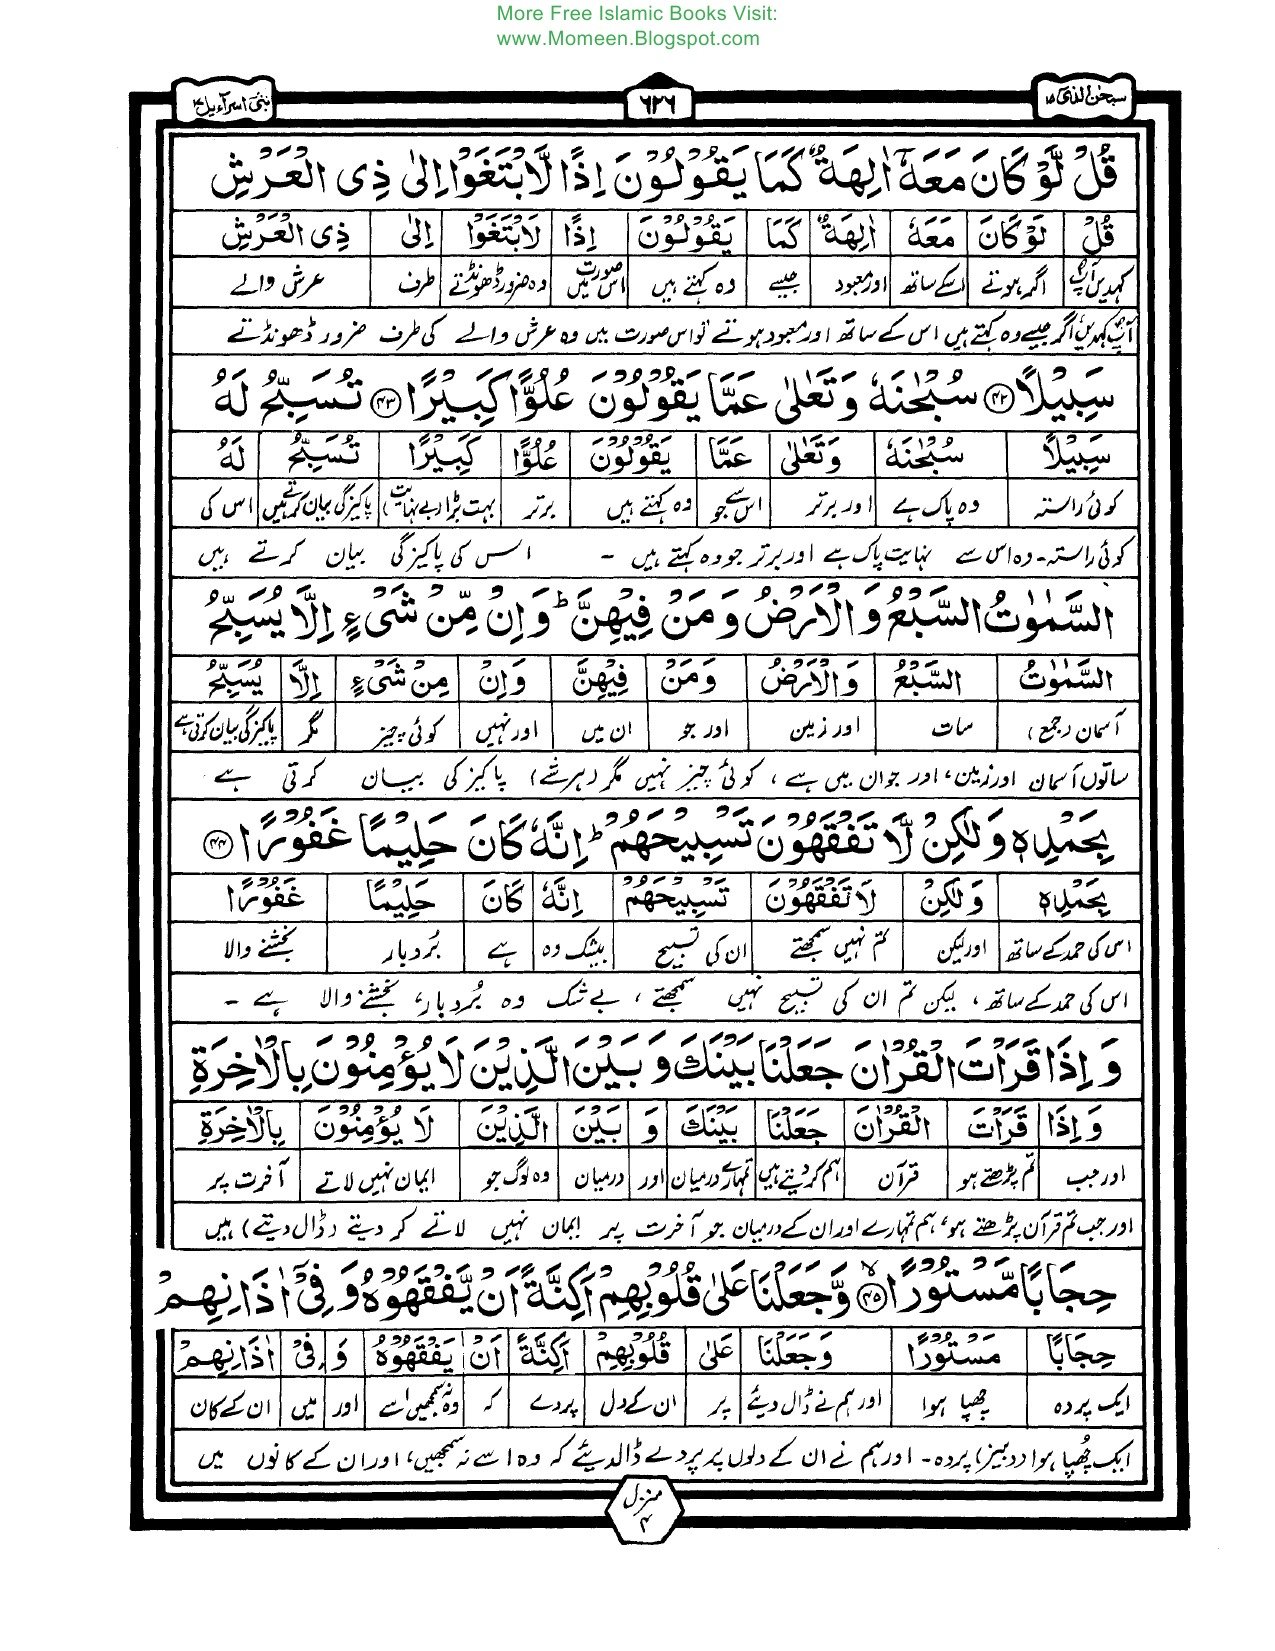 More Free Islamic Books Visit:
www.Momeen.Blogspot.com
سبحن الذی ۱۵
۶۲۶
بنی اسرآءیل ۱۷
قُلْ لَّوْ كَانَ مَعَهٗۤ اٰلِهَةٌ كَمَا یَقُوْلُوْنَ اِذًا لَّابْتَغَوْا اِلٰى ذِی الْعَرْشِ
قُلْ لَوْ كَانَ مَعَهٗ اٰلِهَةٌ كَمَا یَقُوْلُوْنَ اِذًا لَابْتَغَوْا اِلٰى ذِی الْعَرْشِ
کہدیں آپؐ اگر ہوتے اسکے ساتھ اور معبود جیسے وہ کہتے ہیں اس صورت میں وہ ضرور ڈھونڈتے طرف عرش والے
آپؐ کہدیں اگر جیسے وہ کہتے ہیں اس کے ساتھ اور معبود ہوتے تو اس صورت میں وہ عرش والے کی طرف ضرور ڈھونڈتے
سَبِیْلًا ﴿۴۲﴾ سُبْحٰنَهٗ وَ تَعٰلٰى عَمَّا یَقُوْلُوْنَ عُلُوًّا كَبِیْرًا ﴿۴۳﴾ تُسَبِّحُ لَهُ
سَبِیْلًا سُبْحٰنَهٗ وَتَعٰلٰى عَمَّا یَقُوْلُوْنَ عُلُوًّا كَبِیْرًا تُسَبِّحُ لَهُ
کوئی راستہ وہ پاک ہے اور برتر اس سے جو وہ کہتے ہیں برتر بہت بڑا (بے نہایت) پاکیزگی بیان کرتے ہیں اس کی
کوئی راستہ۔ وہ اس سے نہایت پاک ہے اور برتر جو وہ کہتے ہیں ۔ اس کی پاکیزگی بیان کرتے ہیں
السَّمٰوٰتُ السَّبْعُ وَ الْاَرْضُ وَ مَنْ فِیْهِنَّ ؕ وَ اِنْ مِّنْ شَیْءٍ اِلَّا یُسَبِّحُ
السَّمٰوٰتُ السَّبْعُ وَالْاَرْضُ وَمَنْ فِیْهِنَّ وَاِنْ مِنْ شَیْءٍ اِلَّا یُسَبِّحُ
آسمان (جمع) سات اور زمین اور جو ان میں اور نہیں کوئی چیز مگر پاکیزگی بیان کرتی ہے
ساتوں آسمان اور زمین، اور جو ان میں ہے، کوئی چیز نہیں مگر (ہر شے) پاکیزگی بیان کرتی ہے
بِحَمْدِهٖ وَ لٰكِنْ لَّا تَفْقَهُوْنَ تَسْبِیْحَهُمْ ؕ اِنَّهٗ كَانَ حَلِیْمًا غَفُوْرًا ﴿۴۴﴾
بِحَمْدِهٖ وَلٰكِنْ لَا تَفْقَهُوْنَ تَسْبِیْحَهُمْ اِنَّهٗ كَانَ حَلِیْمًا غَفُوْرًا
اس کی حمد کے ساتھ اور لیکن تم نہیں سمجھتے ان کی تسبیح بیشک وہ ہے بُردبار بخشنے والا
اس کی حمد کے ساتھ، لیکن تم ان کی تسبیح نہیں سمجھتے، بے شک وہ بُردبار، بخشنے والا ہے ۔
وَ اِذَا قَرَاْتَ الْقُرْاٰنَ جَعَلْنَا بَیْنَكَ وَ بَیْنَ الَّذِیْنَ لَا یُؤْمِنُوْنَ بِالْاٰخِرَةِ
وَ اِذَا قَرَاْتَ الْقُرْاٰنَ جَعَلْنَا بَیْنَكَ وَ بَیْنَ الَّذِیْنَ لَا یُؤْمِنُوْنَ بِالْاٰخِرَةِ
اور جب تم پڑھتے ہو قرآن ہم کر دیتے ہیں تمہارے درمیان اور درمیان وہ لوگ جو ایمان نہیں لاتے آخرت پر
اور جب تم قرآن پڑھتے ہو، ہم تمہارے اور ان کے درمیان جو آخرت پر ایمان نہیں لاتے کر دیتے (ڈال دیتے) ہیں
حِجَابًا مَّسْتُوْرًا ﴿۴۵﴾ ۙ وَّ جَعَلْنَا عَلٰى قُلُوْبِهِمْ اَكِنَّةً اَنْ یَّفْقَهُوْهُ وَ فِیْۤ اٰذَانِهِمْ
حِجَابًا مَسْتُوْرًا وَجَعَلْنَا عَلٰى قُلُوْبِهِمْ اَكِنَّةً اَنْ یَفْقَهُوْهُ وَ فِیْ اٰذَانِهِمْ
ایک پردہ چھپا ہوا اور ہم نے ڈال دیئے پر ان کے دل پردے کہ وہ نہ سمجھیں اسے اور میں ان کے کان
ایک چُھپا ہوا (دبیز) پردہ۔ اور ہم نے ان کے دلوں پر پردے ڈالدیئے کہ وہ اسے نہ سمجھیں، اور ان کے کانوں میں
منزل
۴